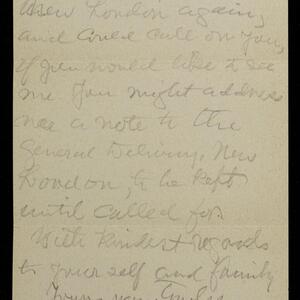 New London again,
and could call on you,
if you would like to see
me you might address
me a note to the
General Delivery, New
London, to be kept
until called for.
With kindest regards
to your self and family
Yours very Truly